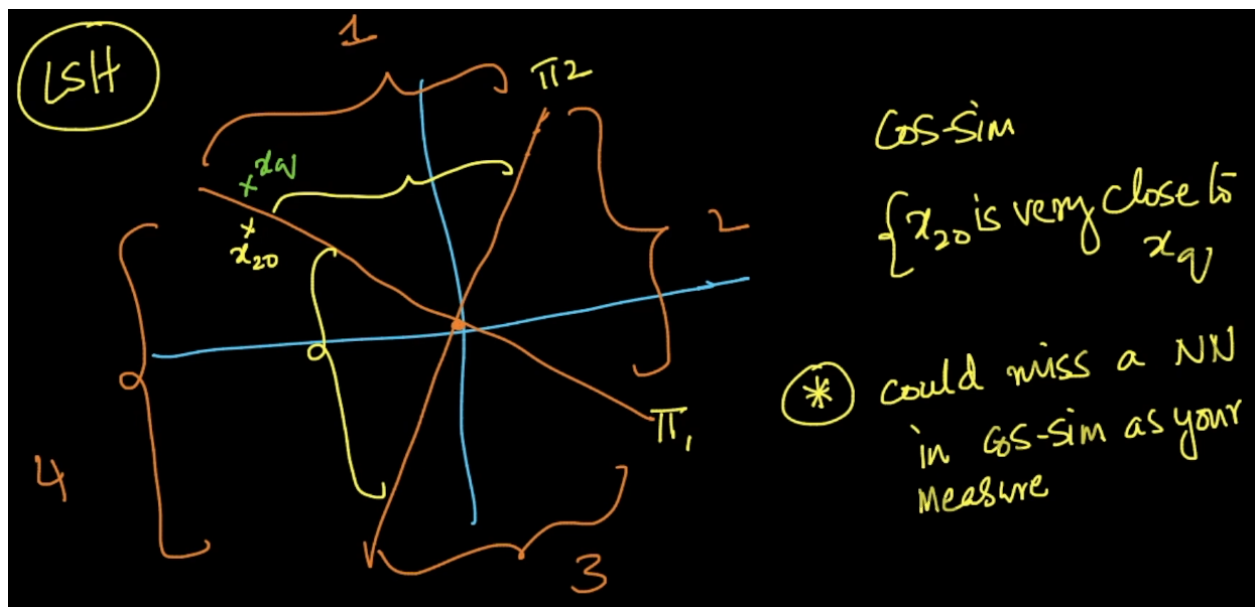 LSH
1
π2
xq
x20
2
π1
3
4
Cos-Sim
{x20 is very close to
xq
* could miss a NN
in cos-sim as your
Measure